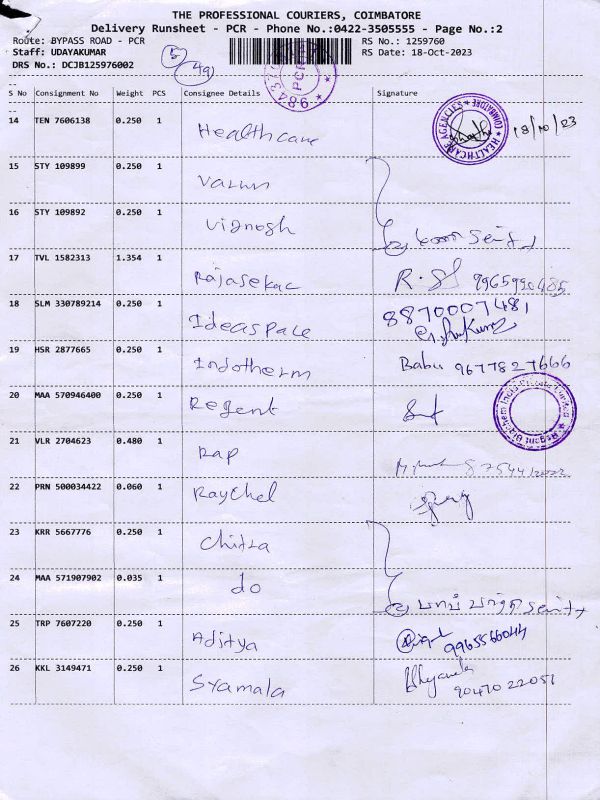 THE PROFESSIONAL COURIERS, COIMBATORE
Delivery Runsheet - PCR - Phone No.:0422-3505555 - Page No.:2
Route: BYPASS ROAD - PCR RS No.: 1259760
Staff: UDAYAKUMAR RS Date: 18-Oct-2023
DRS No.: DCJB125976002
5 49
S No Consignment No Weight PCS Consignee Details Signature
14 TEN 7606138 0.250 1 Healthcare HEALTHCARE AGENCIES COIMBATORE 18/10/23
15 STY 109899 0.250 1 Varun
16 STY 109892 0.250 1 Vignesh
17 TVL 1582313 1.354 1 Rajasekar R.S 9965990485
18 SLM 330789214 0.250 1 Ideaspace 8870007481
19 HSR 2877665 0.250 1 Indotherm Babu 9677827666
20 MAA 570946400 0.250 1 Regent
21 VLR 2704623 0.480 1 Rap
22 PRN 500034422 0.060 1 Raychel
23 KRR 5667776 0.250 1 Chitra
24 MAA 571907902 0.035 1 do
25 TRP 7607220 0.250 1 Aditya 9965566044
26 KKL 3149471 0.250 1 Syamala 9047022051